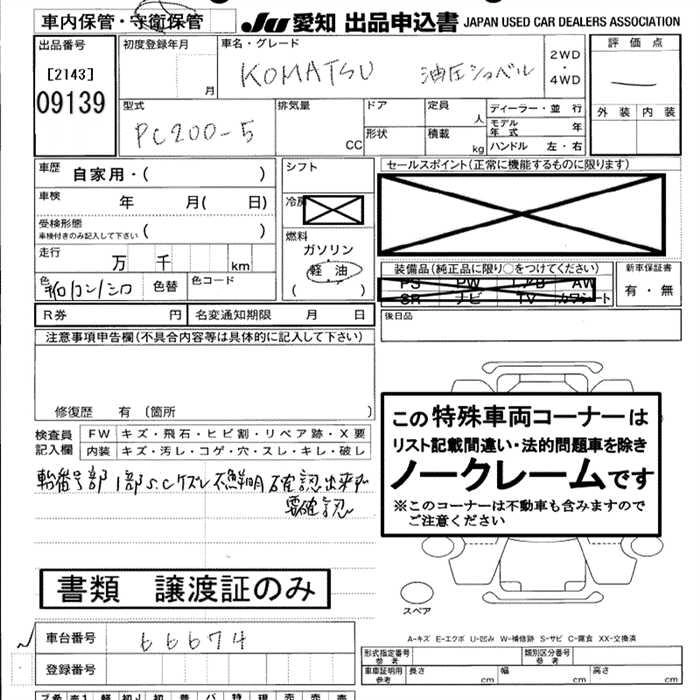 車内保管・守衛保管
JU 愛知 出品申込書 JAPAN USED CAR DEALERS ASSOCIATION
出品番号 [2143] 09139
初度登録年月 月
車名・グレード KOMATSU 油圧ショベル
2WD ・ 4WD
評価点 —
外装 内装
型式 PC200-5
排気量 CC
ドア
形状
定員 人
積載 kg
ディーラー・並行
モデル年式 年
ハンドル 左・右
車歴 自家用・( )
車検 年 月( 日)
受検形態 車検付きのみ記入して下さい ( )
走行 万 千 km
色 色替 色コード
シフト
冷房
燃料 ガソリン 軽油 ( )
セールスポイント(正常に機能するものに限ります)
装備品(純正品に限り○をつけてください)
PS PW エアB AW
SR ナビ TV カワシート
新車保証書 有・無
R券 円 名変通知期限 月 日
後日品
注意事項申告欄(不具合内容等は具体的に記入して下さい)
修復歴 有 (箇所 )
検査員記入欄
FW キズ・飛石・ヒビ割・リペア跡・X要
内装 キズ・汚レ・コゲ・穴・スレ・キレ・破レ
要確認
この特殊車両コーナーは
リスト記載間違い・法的問題車を除き
ノークレームです
※このコーナーは不動車も含みますので
ご注意ください
書類 譲渡証のみ
スペア
車台番号 66674
登録番号
A-キズ E-エクボ U-凹み W-補修跡 S-サビ C-腐食 XX-交換済
型式指定番号 参考
類別区分番号 参考
車庫証明用 参考 長さ cm 幅 cm 高さ cm